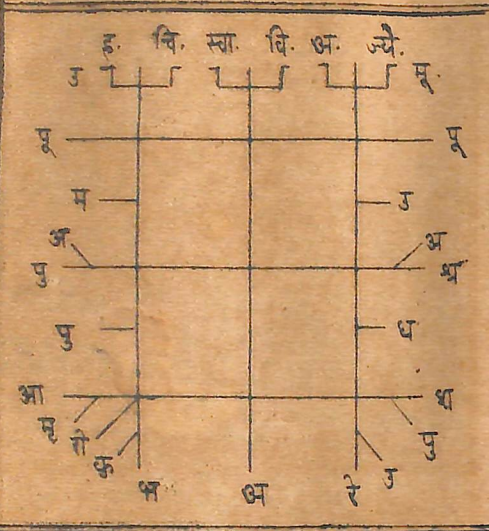 ह. चि. स्वा. वि. अ. ज्ये.
उ मू.
पू पू
म उ
अ अ
पु श्र
पु ध
आ श
मृ पु
रो उ
कृ
भ अ रे